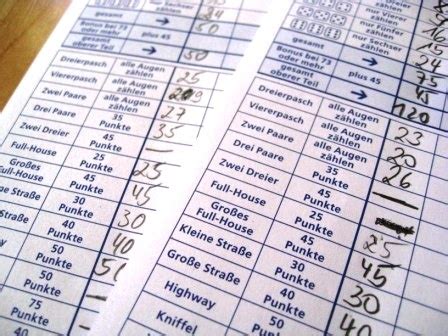 24
Bonus bei 73 oder mehr plus
gesamt oberer Teil → 50
Dreierpasch alle Augen zählen 25
Viererpasch alle Augen zählen
Zwei Paare alle Augen zählen 27
Drei Paare 35 Punkte 35
Zwei Dreier 45 Punkte —
Full-House 25 Punkte 25
Großes Full-House 45 Punkte 45
Kleine Straße 30 Punkte 30
Straße 40 Punkte 40
50 Punkte 50
40 Punkte
50 Punkte —
75 Punkte
nur Vierer zählen
nur Fünfer zählen
nur Sechser zählen 24
gesamt → 75
Bonus bei 73 oder mehr plus 45 45
gesamt oberer Teil → 120
Dreierpasch alle Augen zählen 23
Viererpasch alle Augen zählen 20
Zwei Paare alle Augen zählen 26
Drei Paare 35 Punkte —
Zwei Dreier 45 Punkte
Full-House 25 Punkte 25
Großes Full-House 45 Punkte 45
Kleine Straße 30 Punkte 30
Große Straße 40 Punkte 40
Highway 50 Punkte
Kniffel 50